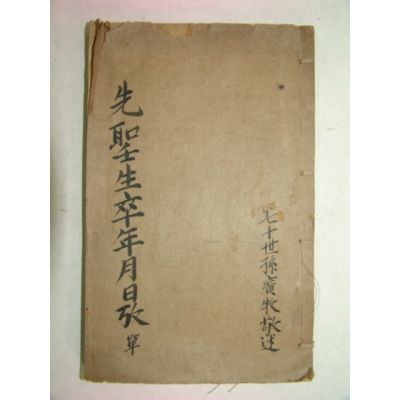 先聖生卒年月日攷 單
七十世孫廣牧述